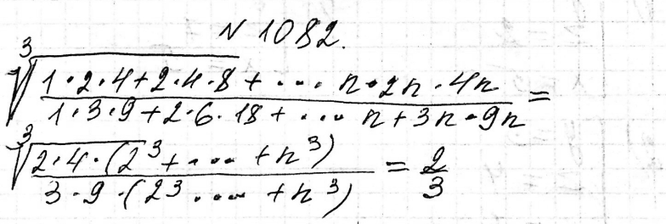 N 1082.
∛(1·2·4+2·4·8+ ··· n·2n·4n / 1·3·9+2·6·18+ ··· n+3n·9n) =
∛(2·4·(2³+ ··· +n³) / 3·9·(2³ ···· +n³)) = 2/3